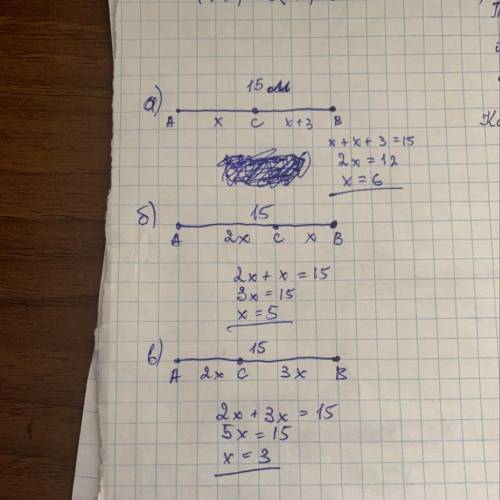 15 м
а)
A x C x+3 B
x + x + 3 = 15
2x = 12
x = 6
15
б)
A 2x C x B
2x + x = 15
3x = 15
x = 5
15
в)
A 2x C 3x B
2x + 3x = 15
5x = 15
x = 3